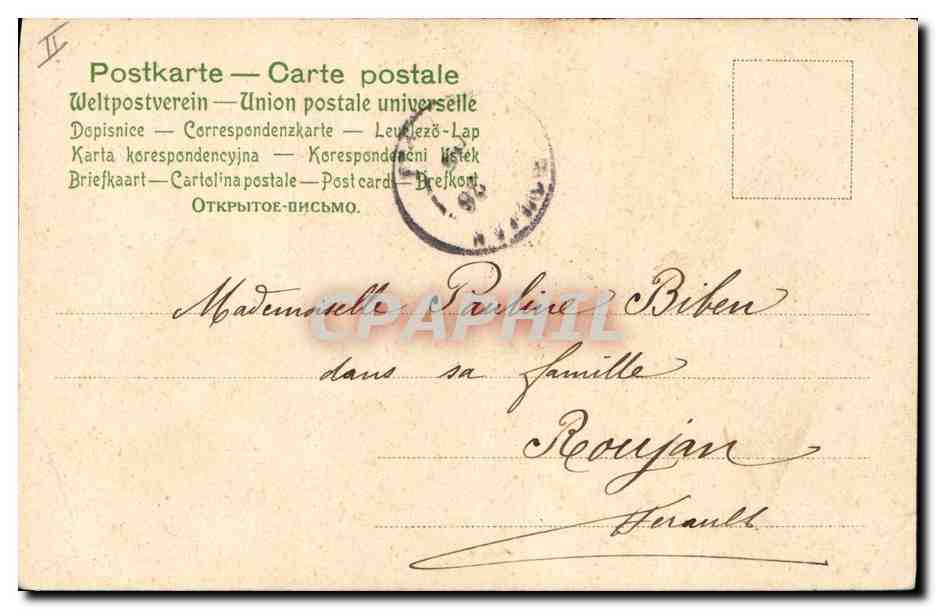 II
Postkarte — Carte postale
Weltpostverein — Union postale universelle
Dopisnice — Correspondenzkarte — Levelező-Lap
Karta korespondencyjna — Korespondenčni listek
Briefkaart — Cartolina postale — Post card — Brefkort
ОТКРЫТОЕ-ПИСЬМО.
Mademoiselle Pauline Biben
CPAPHIL
dans sa famille
Roujan
Herault